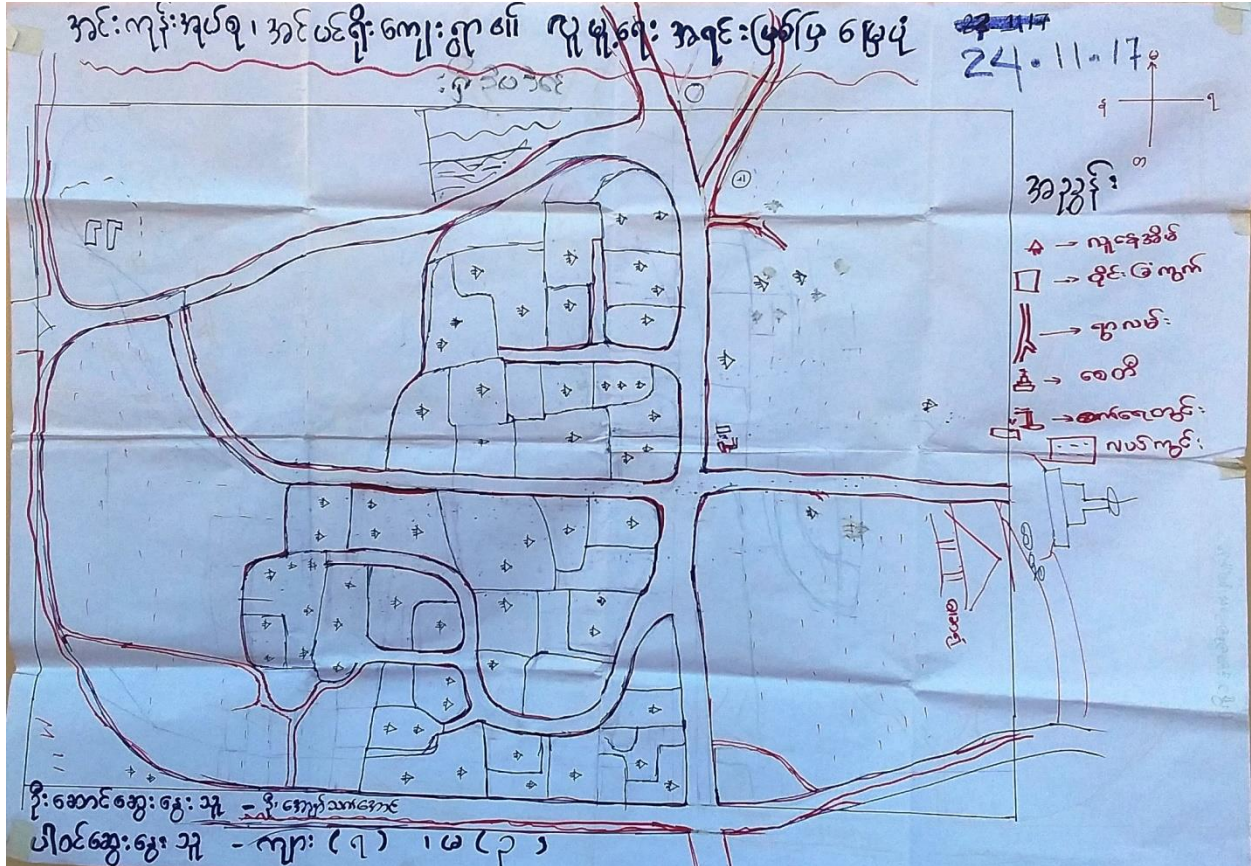 အင်းကုန်းအုပ်စု၊ အင်ပင်ရိုးကျေးရွာ၏ လူမှုရေး အရင်းမြစ်ပြ မြေပုံ
24.11.17
အညွှန်း
→ လူနေအိမ်
→ ဝိုင်းခြံကွက်
→ ရွာလမ်း
→ စေတီ
→ စက်ရေတွင်း
လယ်ကွင်း
ဦးဆောင်ဆွေးနွေးသူ - ဦးကျော်သက်အောင်
ပါဝင်ဆွေးနွေးသူ - ကျား (၇) ၊ မ (၃)